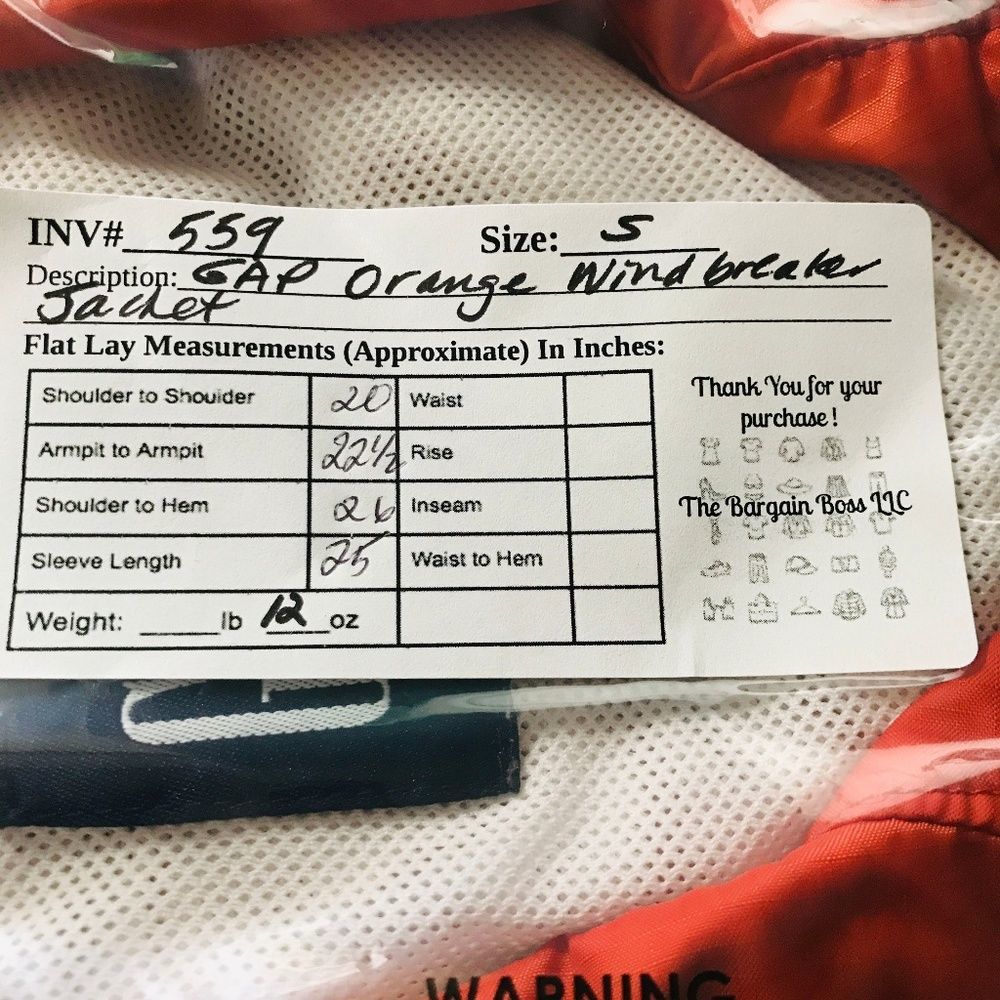 INV# 559 Size: S
Description: GAP Orange Windbreaker
Jacket
Flat Lay Measurements (Approximate) In Inches:
Shoulder to Shoulder 20 Waist
Armpit to Armpit 22 1/2 Rise
Shoulder to Hem 26 Inseam
Sleeve Length 25 Waist to Hem
Weight: ____lb 12 oz
Thank You for your
purchase!
The Bargain Boss LLC
WARNING